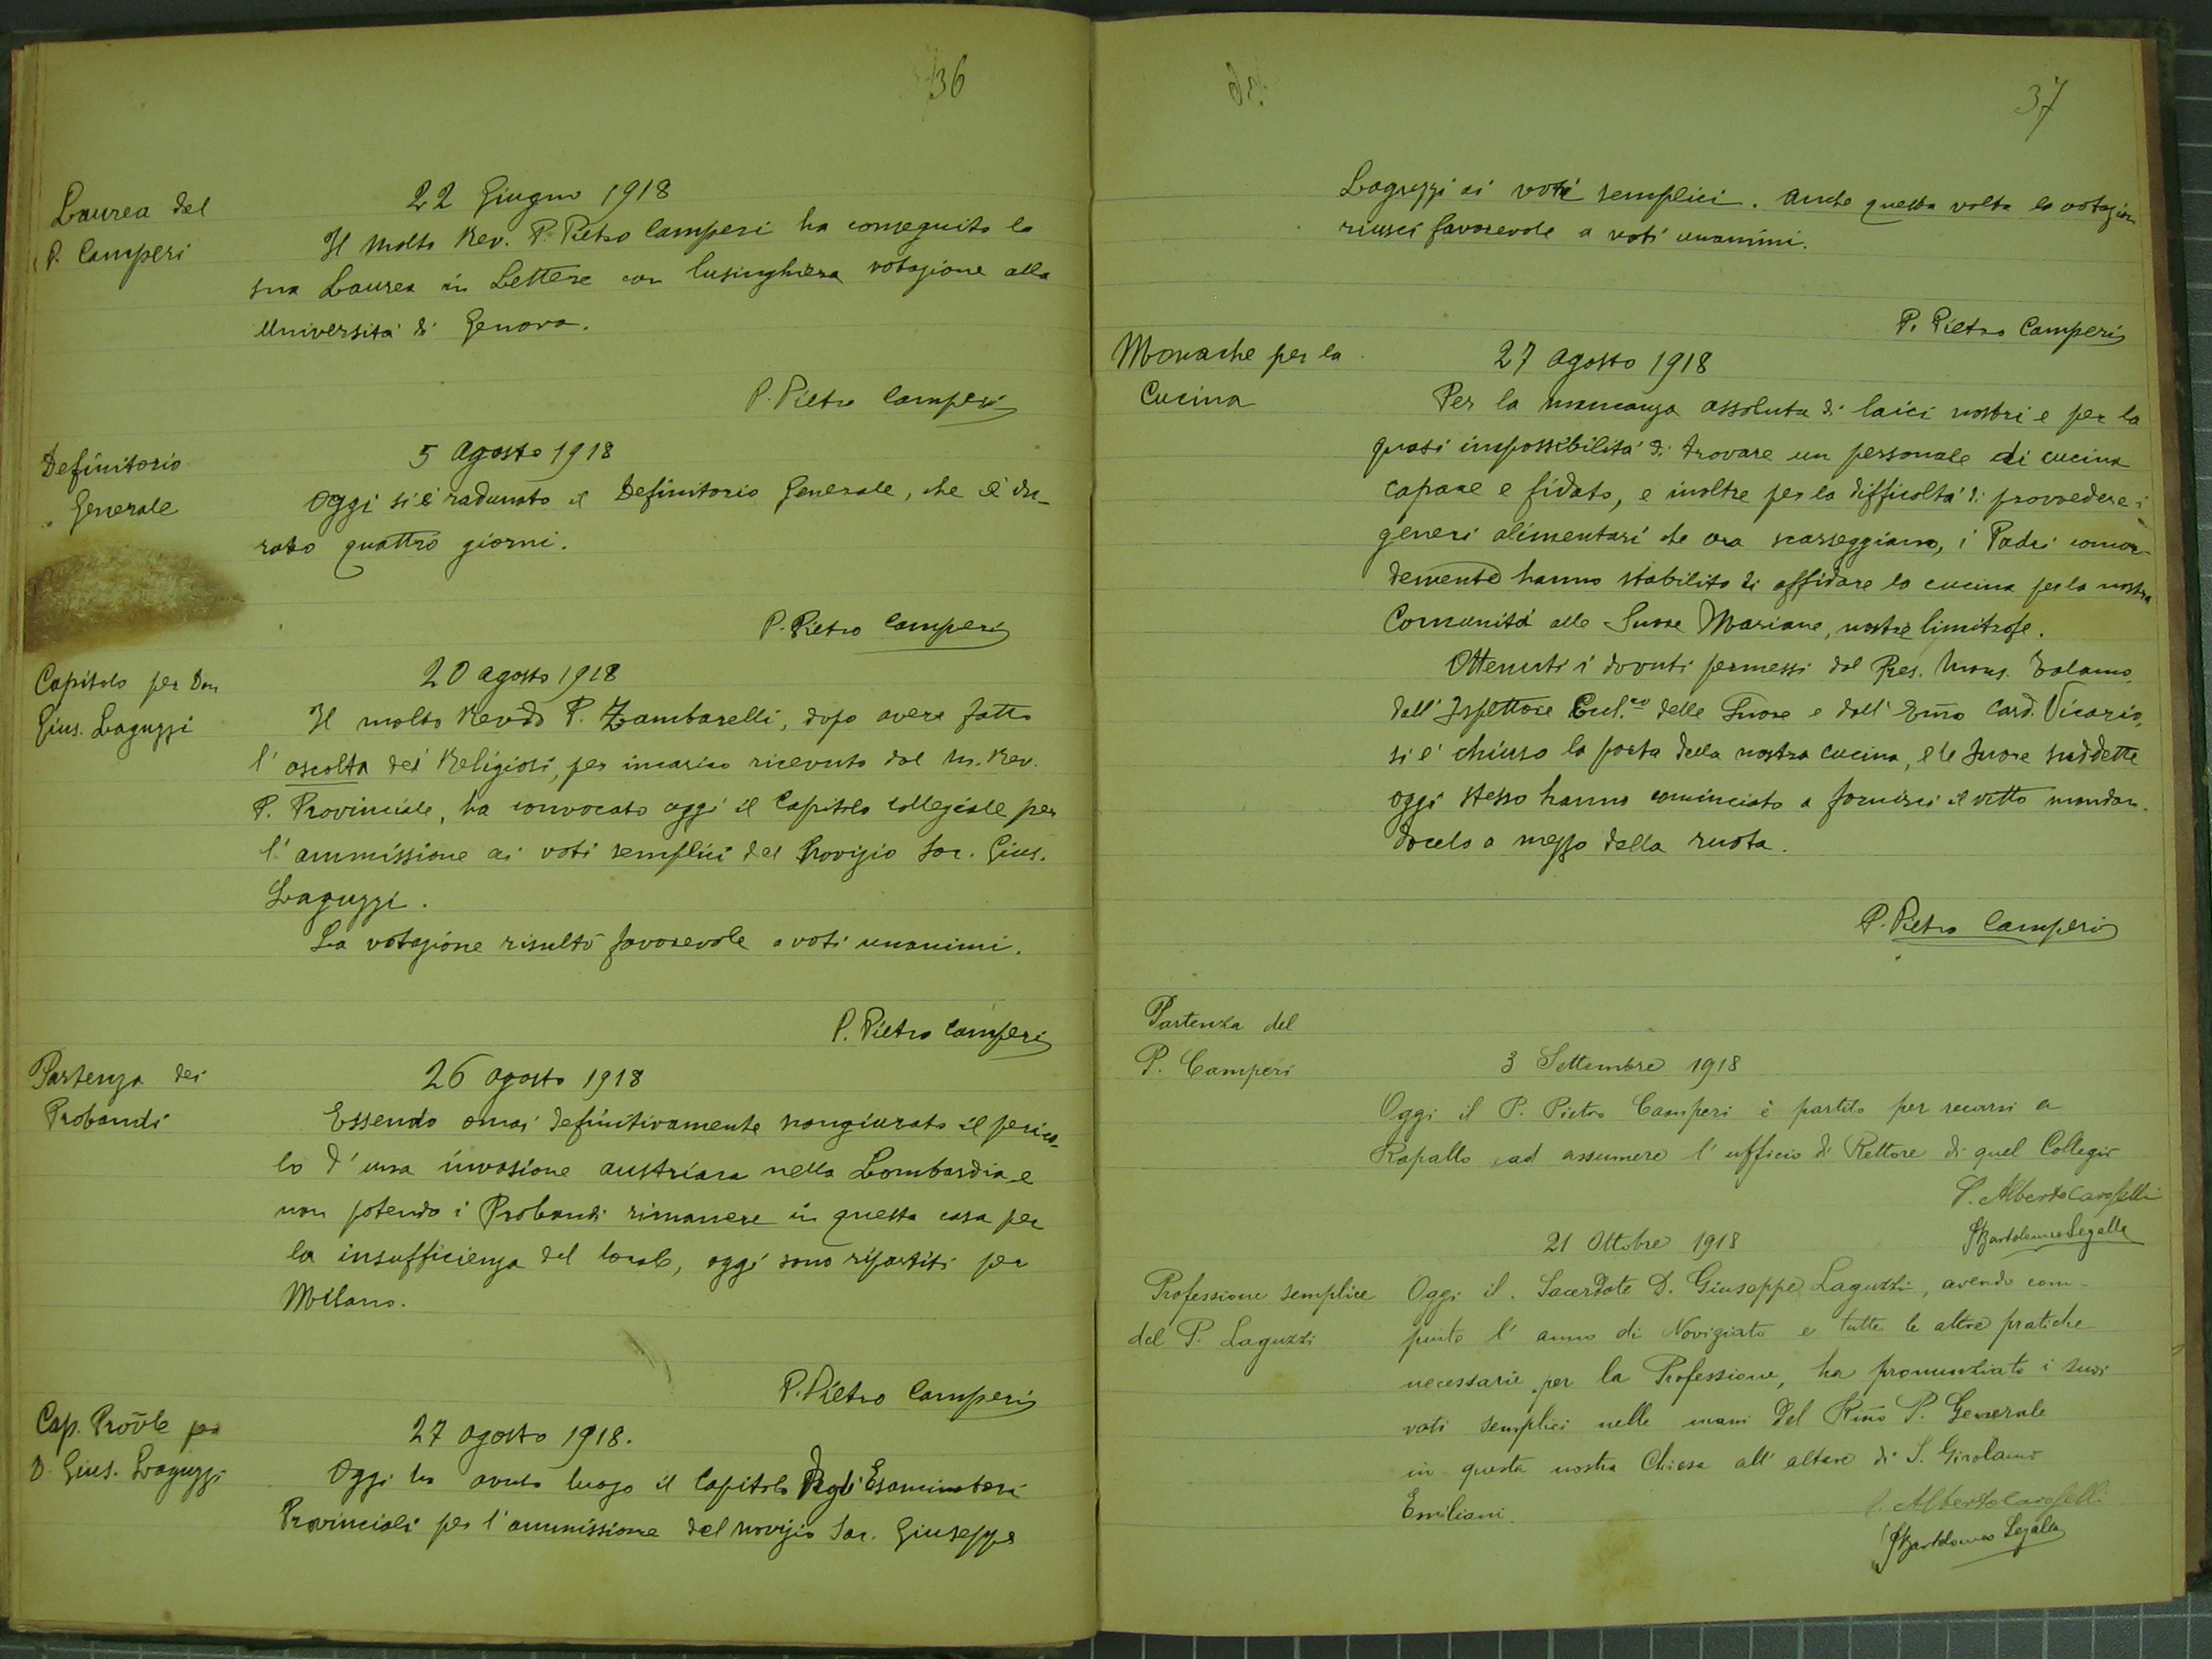 36
Laurea del
P. Camperi
22 Giugno 1918
Il Molto Rev. P. Pietro Camperi ha conseguito la
sua Laurea in Lettere con lusinghiera votazione alla
Università di Genova.
P. Pietro Camperi
Definitorio
Generale
5 Agosto 1918
Oggi si è radunato il Definitorio Generale, che è du-
rato quattro giorni.
P. Pietro Camperi
Capitolo per Don
Gius. Laguzzi
20 agosto 1918
Il molto Revdo P. Zambarelli, dopo avere fatto
l'ascolta dei Religiosi, per incarico ricevuto dal M. Rev.
P. Provinciale, ha convocato oggi il Capitolo collegiale per
l'ammissione ai voti semplici del Novizio Sac. Gius.
Laguzzi.
La votazione risultò favorevole a voti unanimi.
P. Pietro Camperi
Partenza dei
Probandi
26 agosto 1918
Essendo omai definitivamente scongiurato il perico-
lo d'una invasione austriaca nella Lombardia e
non potendo i Probandi rimanere in questa casa per
la insufficienza del locale, oggi sono ripartiti per
Milano.
P. Pietro Camperi
Cap. Prov̄le per
D. Gius. Laguzzi
27 agosto 1918.
Oggi ha avuto luogo il Capitolo degli Esaminatori
Provinciali per l'ammissione del novizio Sac. Giuseppe
37
Laguzzi ai voti semplici. Anche questa volta la votazion
riuscì favorevole a voti unanimi.
P. Pietro Camperi
Monache per la
Cucina
27 agosto 1918
Per la mancanza assoluta di laici nostri e per la
quasi impossibilità di trovare un personale di cucina
capace e fidato, e inoltre per la difficoltà di provvedere i
generi alimentari che ora scarseggiano, i Padri concor-
demente hanno stabilito di affidare la cucina per la nostra
Comunità alle Suore Mariane, nostre limitrofe.
Ottenuti i dovuti permessi dal Pres. Mons.
dall'Ispettore Eccl.co delle Suore e dall'Em̄o Card. Vicario,
si è chiuso la porta della nostra cucina, e le Suore suddette
oggi stesso hanno cominciato a fornirci il vitto mandan-
docelo a mezzo della ruota.
P. Pietro Camperi
Partenza del
P. Camperi
3 Settembre 1918
Oggi il P. Pietro Camperi è partito per recarsi a
Rapallo ad assumere l'ufficio di Rettore di quel Collegio
P. Alberto Carofelli
P. Bartolomeo Segalla
21 Ottobre 1918
Professione semplice
del P. Laguzzi
Oggi il Sacerdote D. Giuseppe Laguzzi, avendo com-
piuto l'anno di Noviziato e tutte le altre pratiche
necessarie per la Professione, ha pronunziato i suoi
voti semplici nelle mani del Rm̄o P. Generale
in questa nostra Chiesa all'altare di S. Girolamo
Emiliani.
P. Alberto Carofelli
P. Bartolomeo Segalla